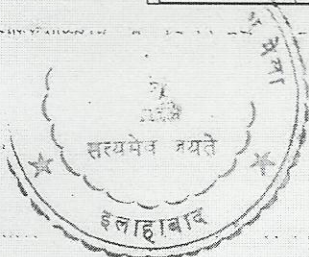 सत्यमेव जयते
इलाहाबाद